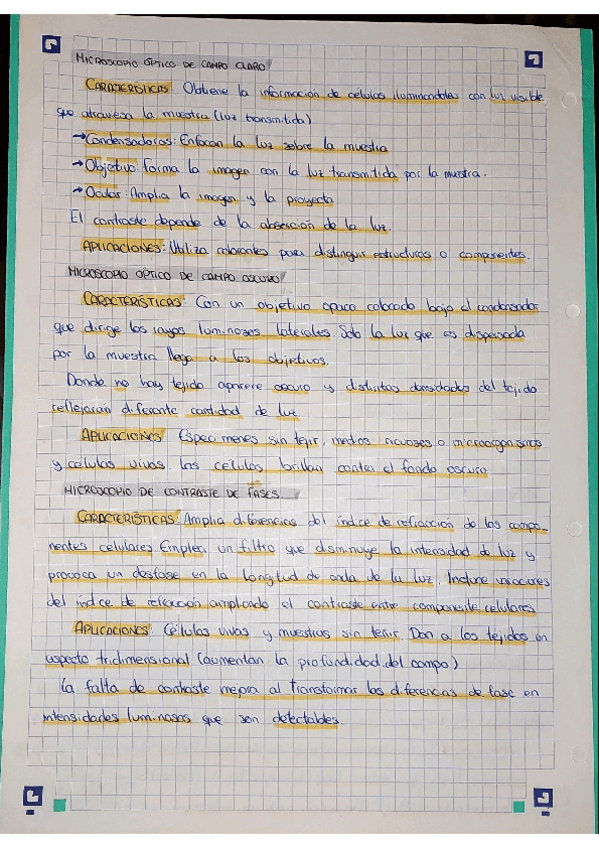 MICROSCOPIO ÓPTICO DE CAMPO CLARO
CARACTERÍSTICAS: Obtiene la información de celulas iluminandolas con luz visible
que atraviesa la muestra (luz transmitida)
→ Condensadores: Enfocan la luz sobre la muestra
→ Objetivo: forma la imagen con la luz transmitida por la muestra.
→ Ocular: Amplia la imagen y la proyecta
El contraste depende de la absorción de la luz.
APLICACIONES: Utiliza colorantes para distinguir estructuras o componentes.
MICROSCOPIO ÓPTICO DE CAMPO OSCURO
CARACTERÍSTICAS: Con un objetivo opaco colocado bajo el condensador
que dirige los rayos luminosos laterales Solo la luz que es dispersada
por la muestra llega a los objetivos.
Donde no hay tejido aparece oscuro y distintas densidades del tejido
reflejaran diferente cantidad de luz.
APLICACIONES: Especimenes sin teñir, medios acuosos o microorganismos
y células vivas las células brillan contra el fondo oscuro
MICROSCOPIO DE CONTRASTE DE FASES.
CARACTERÍSTICAS: Amplia diferencias del índice de refracción de los compo-
nentes celulares Emplea un filtro que disminuye la intensidad de luz y
provoca un desfase en la longitud de onda de la luz.
del índice de refracción ampliado el contraste entre componente celulares
APLICACIONES: Células vivas y muestras sin teñir. Dan a los tejidos un
aspecto tridimensional (aumentan la profundidad del campo)
la falta de contraste mejora al transformar las diferencias de fase en
intensidades luminosas que son detectables.